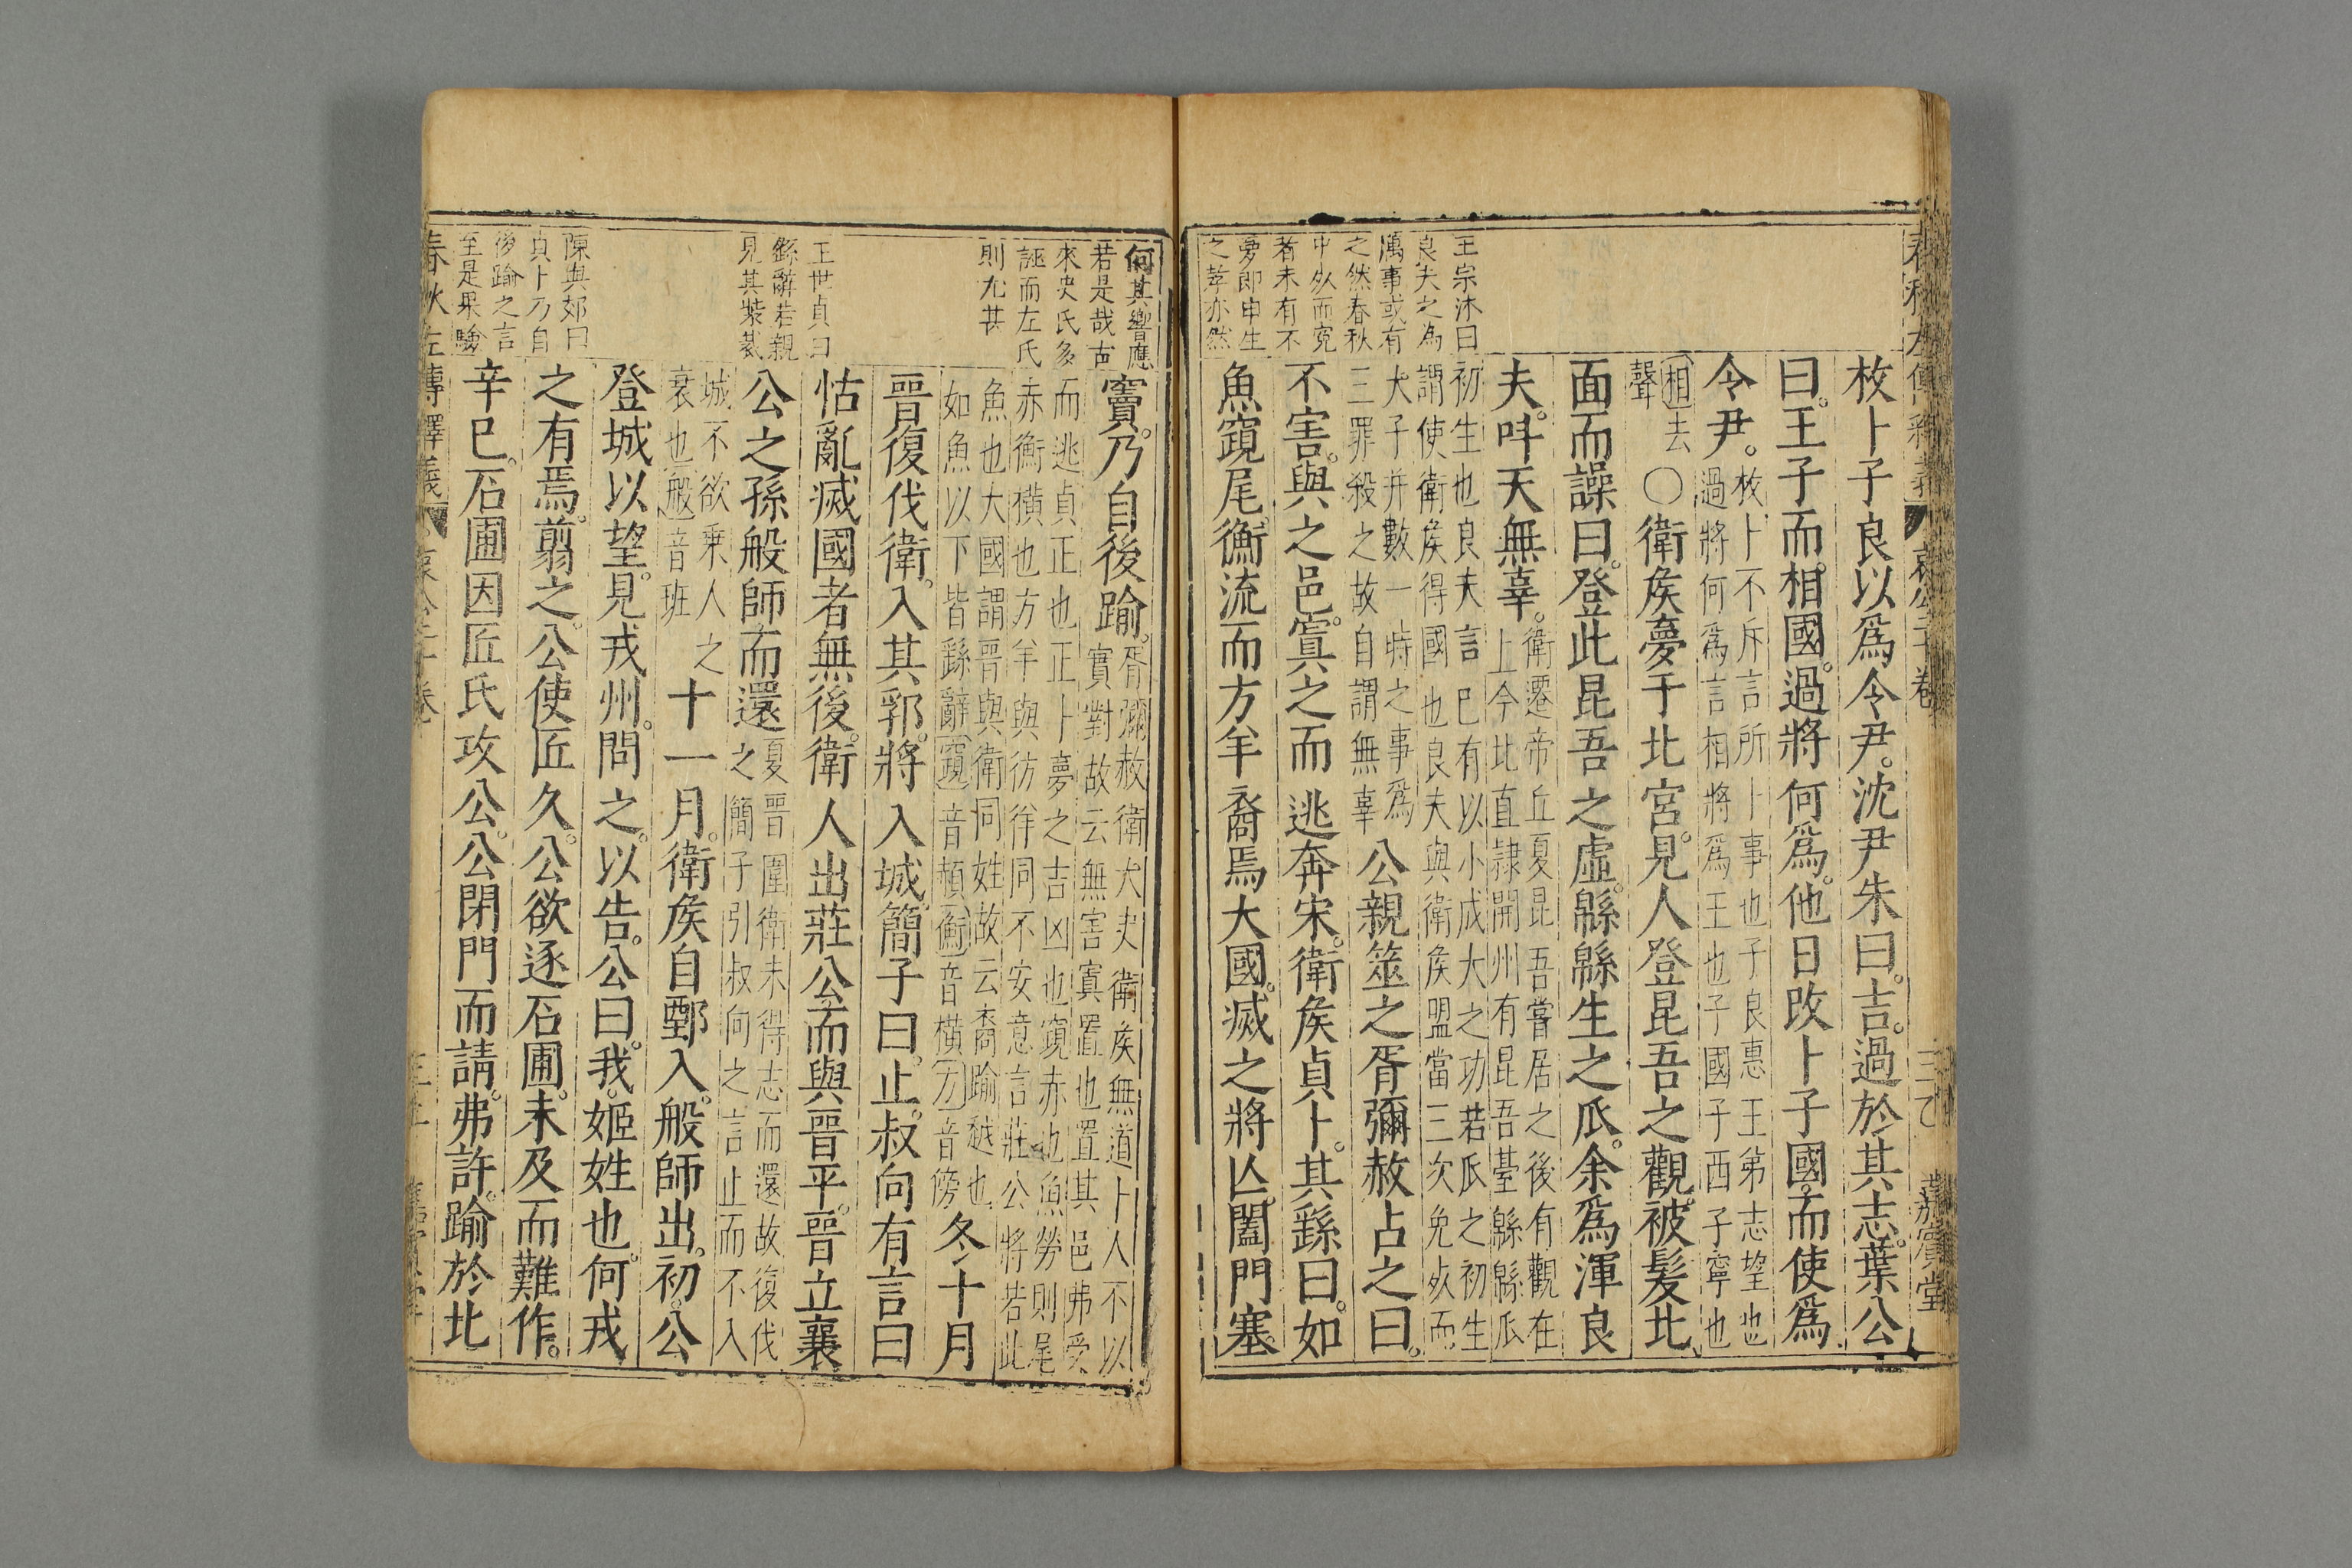 王宗沐曰
良夫之為
厲事或有
之然春秋
中死而寃
者未有不
夢即申生
之葬亦然
枚卜子良以爲令尹。沈尹朱曰。吉。過於其志。葉公
曰。王子而相國。過將何爲。他日改卜子國。而使爲
令尹。枚卜不斥言所卜事也子良惠王弟志望也
過將何爲言相將爲王也子國子西子寧也
相去
聲○衛侯夢于北宮。見人登昆吾之觀。被髮北
面而譟曰。登此昆吾之虛。緜緜生之瓜。余爲渾良
夫。叫天無辜。衛遷帝丘夏昆吾嘗居之後有觀在
上今北直隷開州有昆吾臺緜緜瓜
初生也良夫言已有以小成大之功若瓜之初生
謂使衛侯得國也良夫與衛侯盟當三次免死而
大子并數一時之事爲
三罪殺之故自謂無辜公親筮之胥彌赦占之曰。
不害。與之邑。寘之而逃奔宋。衛侯貞卜。其繇曰。如
魚竀尾。衡流而方羊裔焉大國。滅之將亾。闔門塞
何其響應
若是哉古
來史氏多
誣而左氏
則尤甚
王世貞曰
繇辭若親
見其裝裁
陳與郊曰
貞卜乃自
後踰之言
至是果驗
竇。乃自後踰。胥彌赦衛大史衛侯無道卜人不以
實對故云無害寘置也置其邑弗受
而逃貞正也正卜夢之吉凶也竀赤也魚勞則尾
赤衡橫也方羊與彷徉同不安意言莊公將若此
魚也大國謂晉與衛同姓故云裔踰越也
如魚以下皆繇辭竀音頳衡音橫方音傍冬十月
晉復伐衛。入其郛。將入城。簡子曰。止。叔向有言曰
怙亂滅國者無後。衛人出莊公而與晉平。晉立襄
公之孫般師而還夏晉圍衛未得志而還故復伐
之簡子引叔向之言止而不入
城不欲乗人之
衰也般音班十一月。衛侯自鄄入。般師出。初。公
登城以望。見戎州。問之。以告。公曰。我。姬姓也。何戎
之有焉。翦之。公使匠久。公欲逐石圃。未及而難作。
辛巳。石圃因匠氏攻公。公閉門而請。弗許。踰於北
春秋左傳釋義